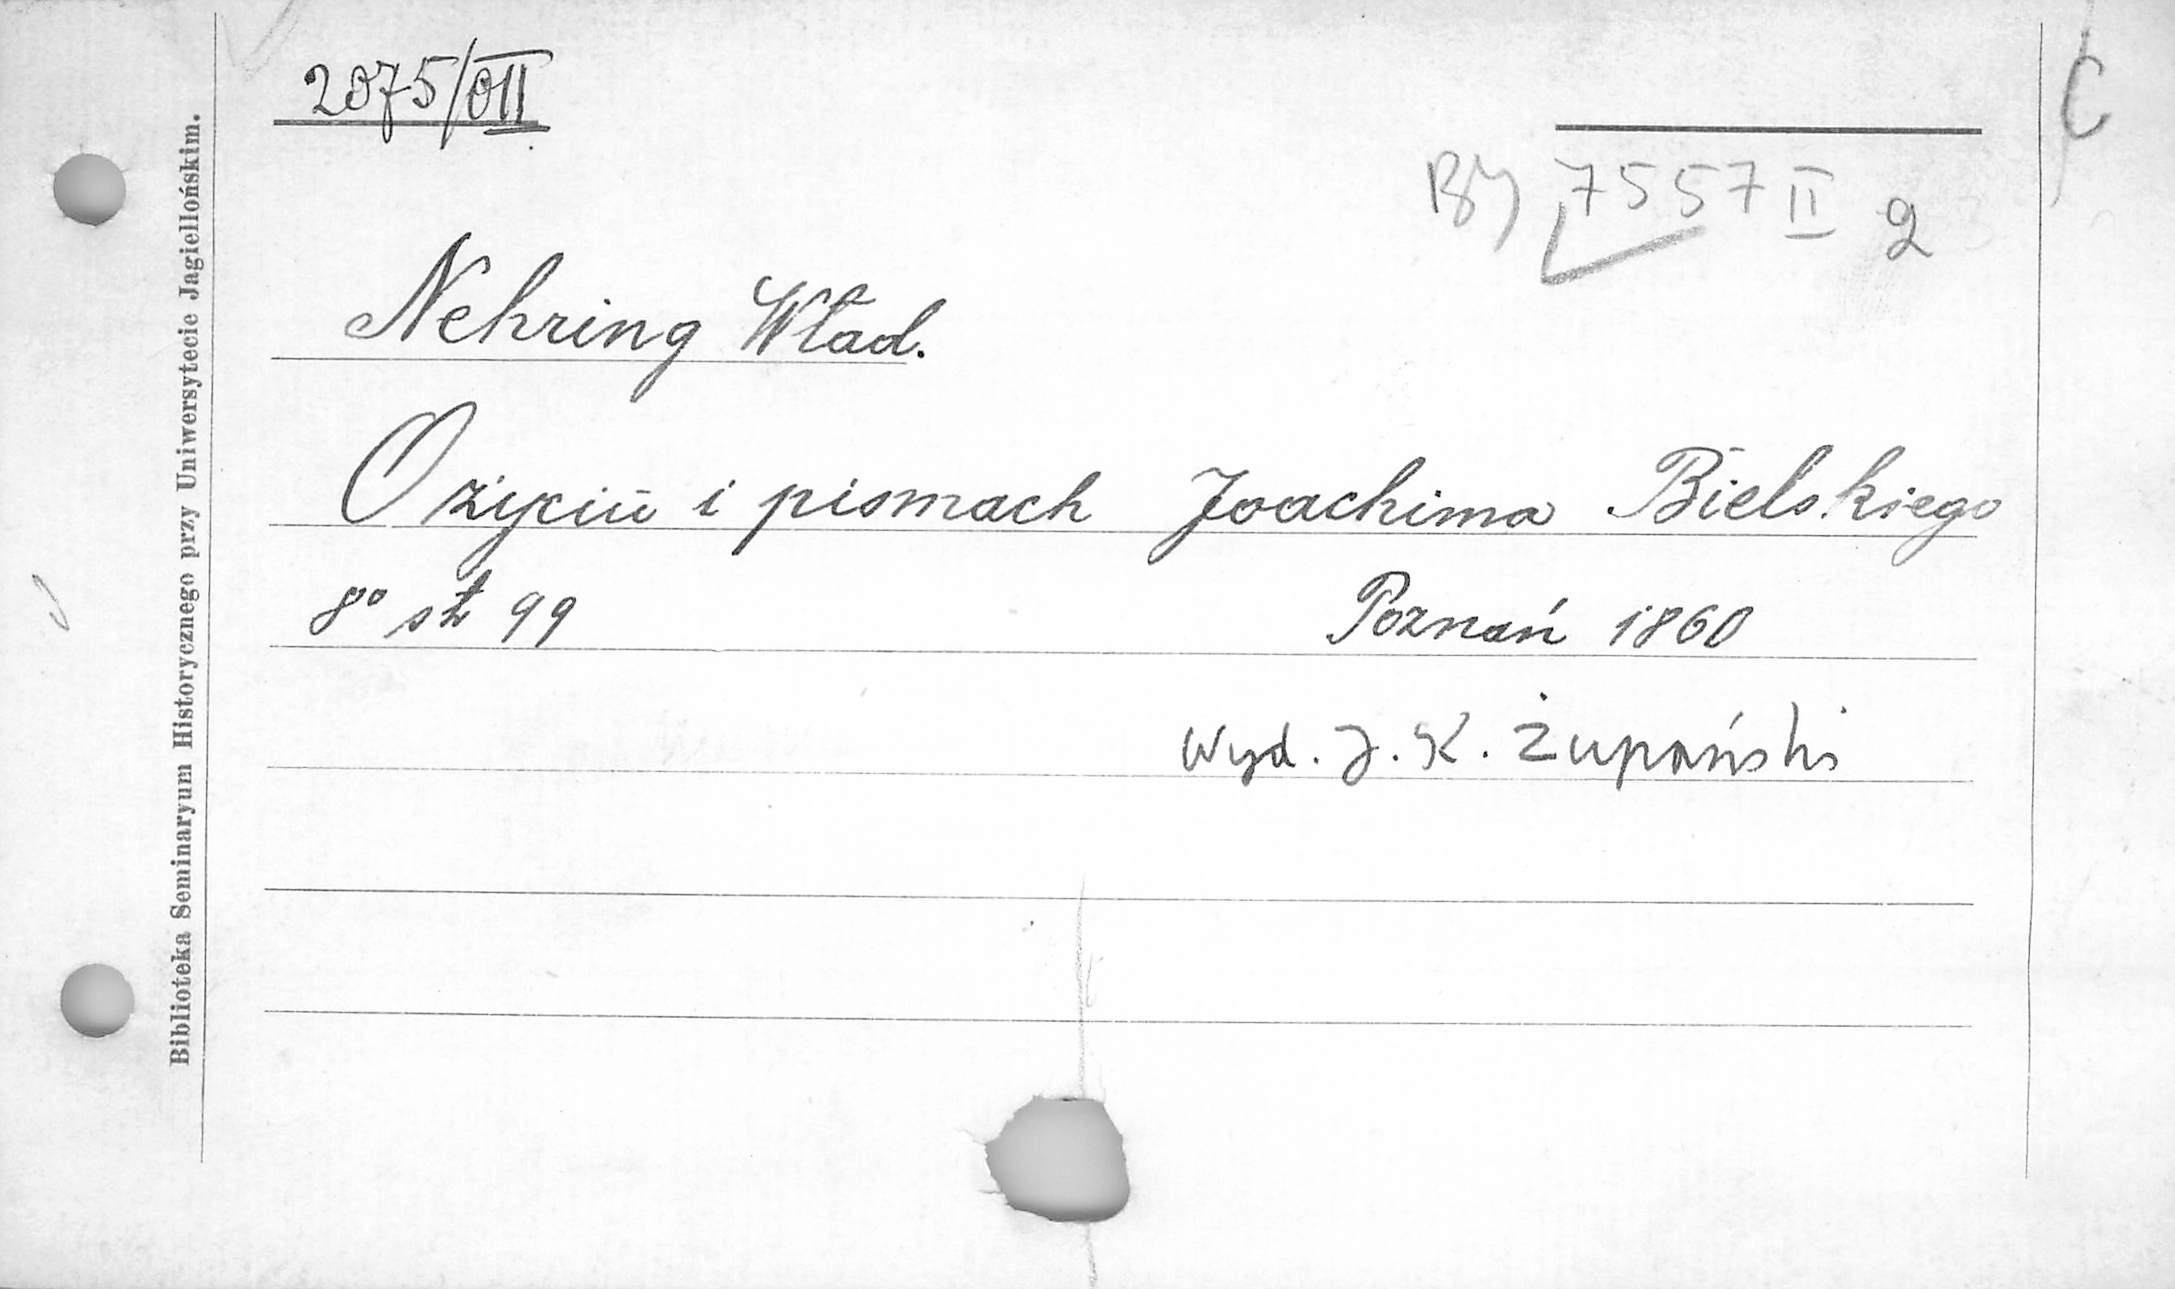 2075/OII
BJ 7557 II 2
C
Nehring Wład.
O życiu i pismach Joachima Bielskiego
8° st 99 Poznań 1860
Wyd. J. K. Żupański
Biblioteka Seminaryum Historycznego przy Uniwersytecie Jagiellońskim.